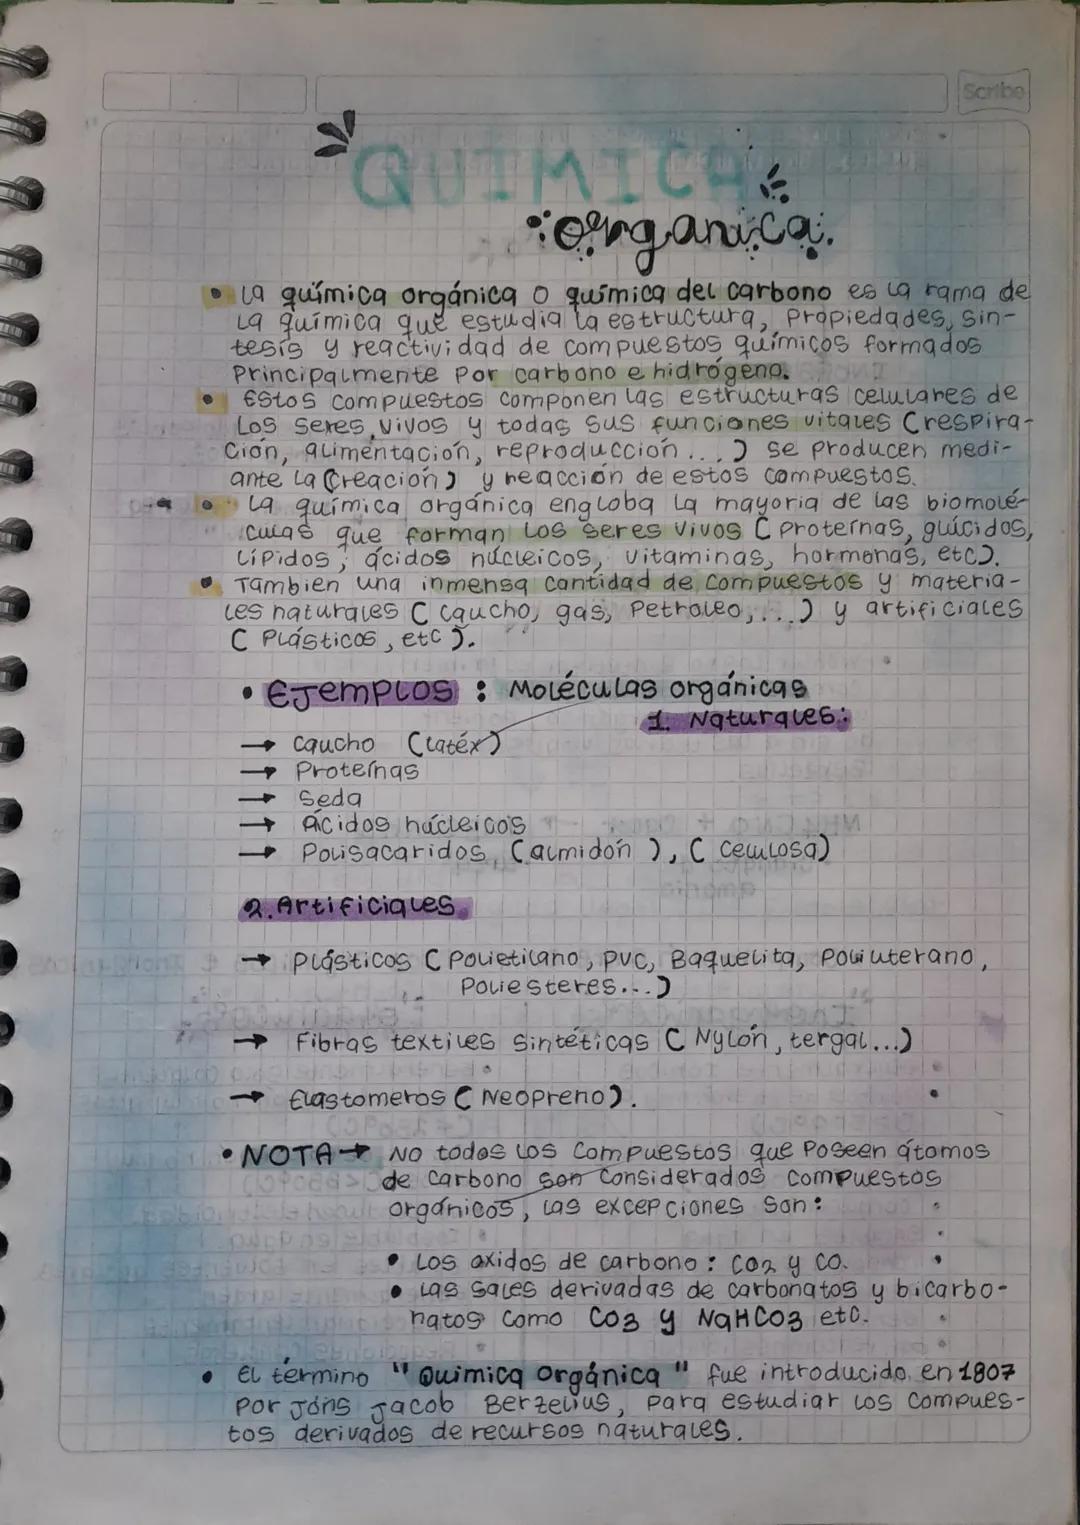 Scribe
QUIMICA
organica.
• La química orgánica o química del carbono es la rama de
la química que estudia la estructura, propiedades, sin-
tesis y reactividad de compuestos químicos formados
Principalmente Por carbono e hidrógeno.
• Estos compuestos componen las estructuras celulares de
Los seres vivos y todas sus funciones vitales (respira-
ción, alimentación, reproducción...) se producen medi-
ante la (creación) y reacción de estos compuestos.
• La química orgánica engloba la mayoría de las biomolé-
culas que forman los seres vivos (proteínas, glúcidos,
lípidos, ácidos núcleicos, vitaminas, hormonas, etc).
• Tambien una inmensa cantidad de compuestos y materia-
les naturales (caucho, gas, Petroleo,...) y artificiales
(Plásticos, etc).
• Ejemplos : Moléculas orgánicas
1. Naturales:
→ Caucho (latéx)
→ Proteínas
→ Seda
→ Ácidos núcleicos
→ Polisacaridos (almidón), (celulosa)
2. Artificiales
→ Plásticos (Polietilano, PVC, Baquelita, Poliuterano,
Poliesteres...)
→ Fibras textiles sintéticas (Nylón, tergal...)
→ Elastomeros (Neopreno).
• NOTA → No todos los compuestos que Poseen átomos
de carbono son considerados compuestos
orgánicos, las excepciones son:
• Los oxidos de carbono: CO2 y CO.
• Las sales derivadas de carbonatos y bicarbo-
natos como CO3 y NaHCO3 etc.
• El término "Quimica orgánica" fue introducido en 1807
por Jöns Jacob Berzelius, para estudiar los compues-
tos derivados de recursos naturales.